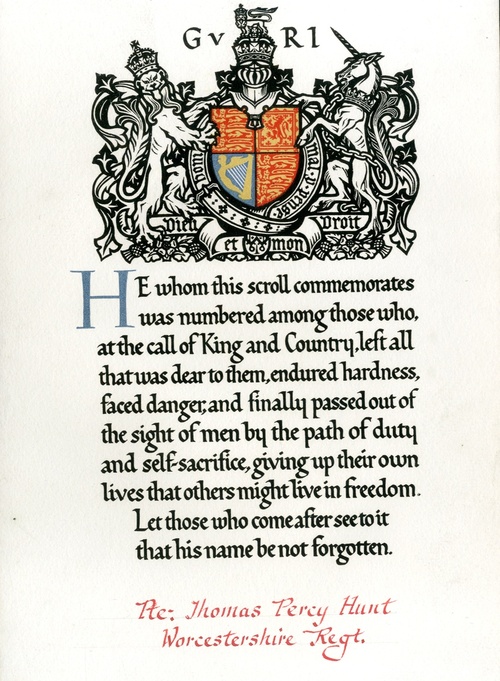 G V R I
mal·y·pense
Dieu et mon Droit
HE whom this scroll commemorates
was numbered among those who,
at the call of King and Country, left all
that was dear to them, endured hardness,
faced danger, and finally passed out of
the sight of men by the path of duty
and self-sacrifice, giving up their own
lives that others might live in freedom.
Let those who come after see to it
that his name be not forgotten.
Pte: Thomas Percy Hunt
Worcestershire Regt.